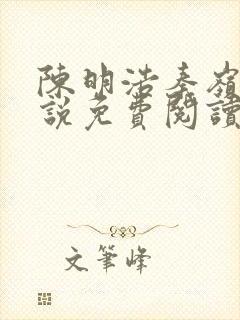 陳明浩秦嶺
說免費閱讀
文筆峰